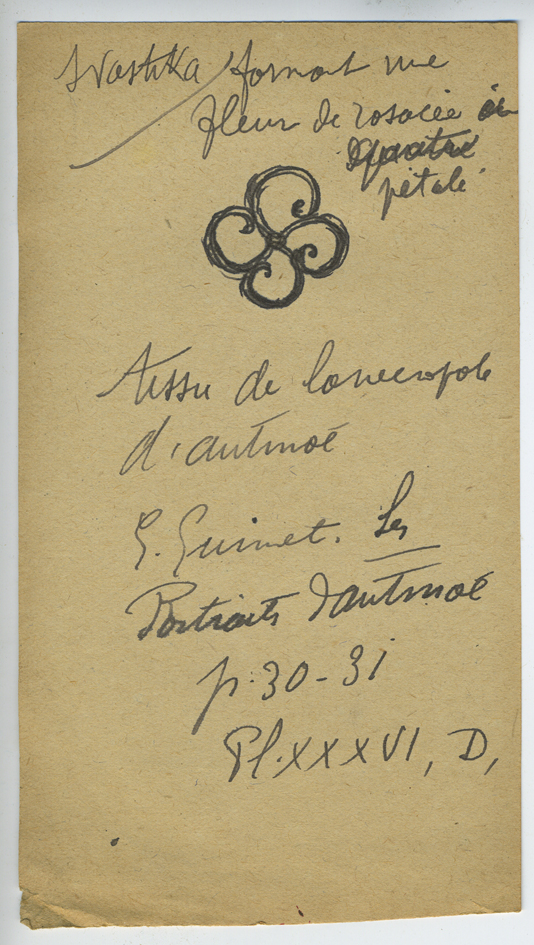 Svastika formant une
fleur de rosacée à
quatre
pétale
Tissu de la necropole
d'antinoé
E. Guimet. Les
Portraits d'antinoé
p. 30-31
Pl. XXXVI, D,